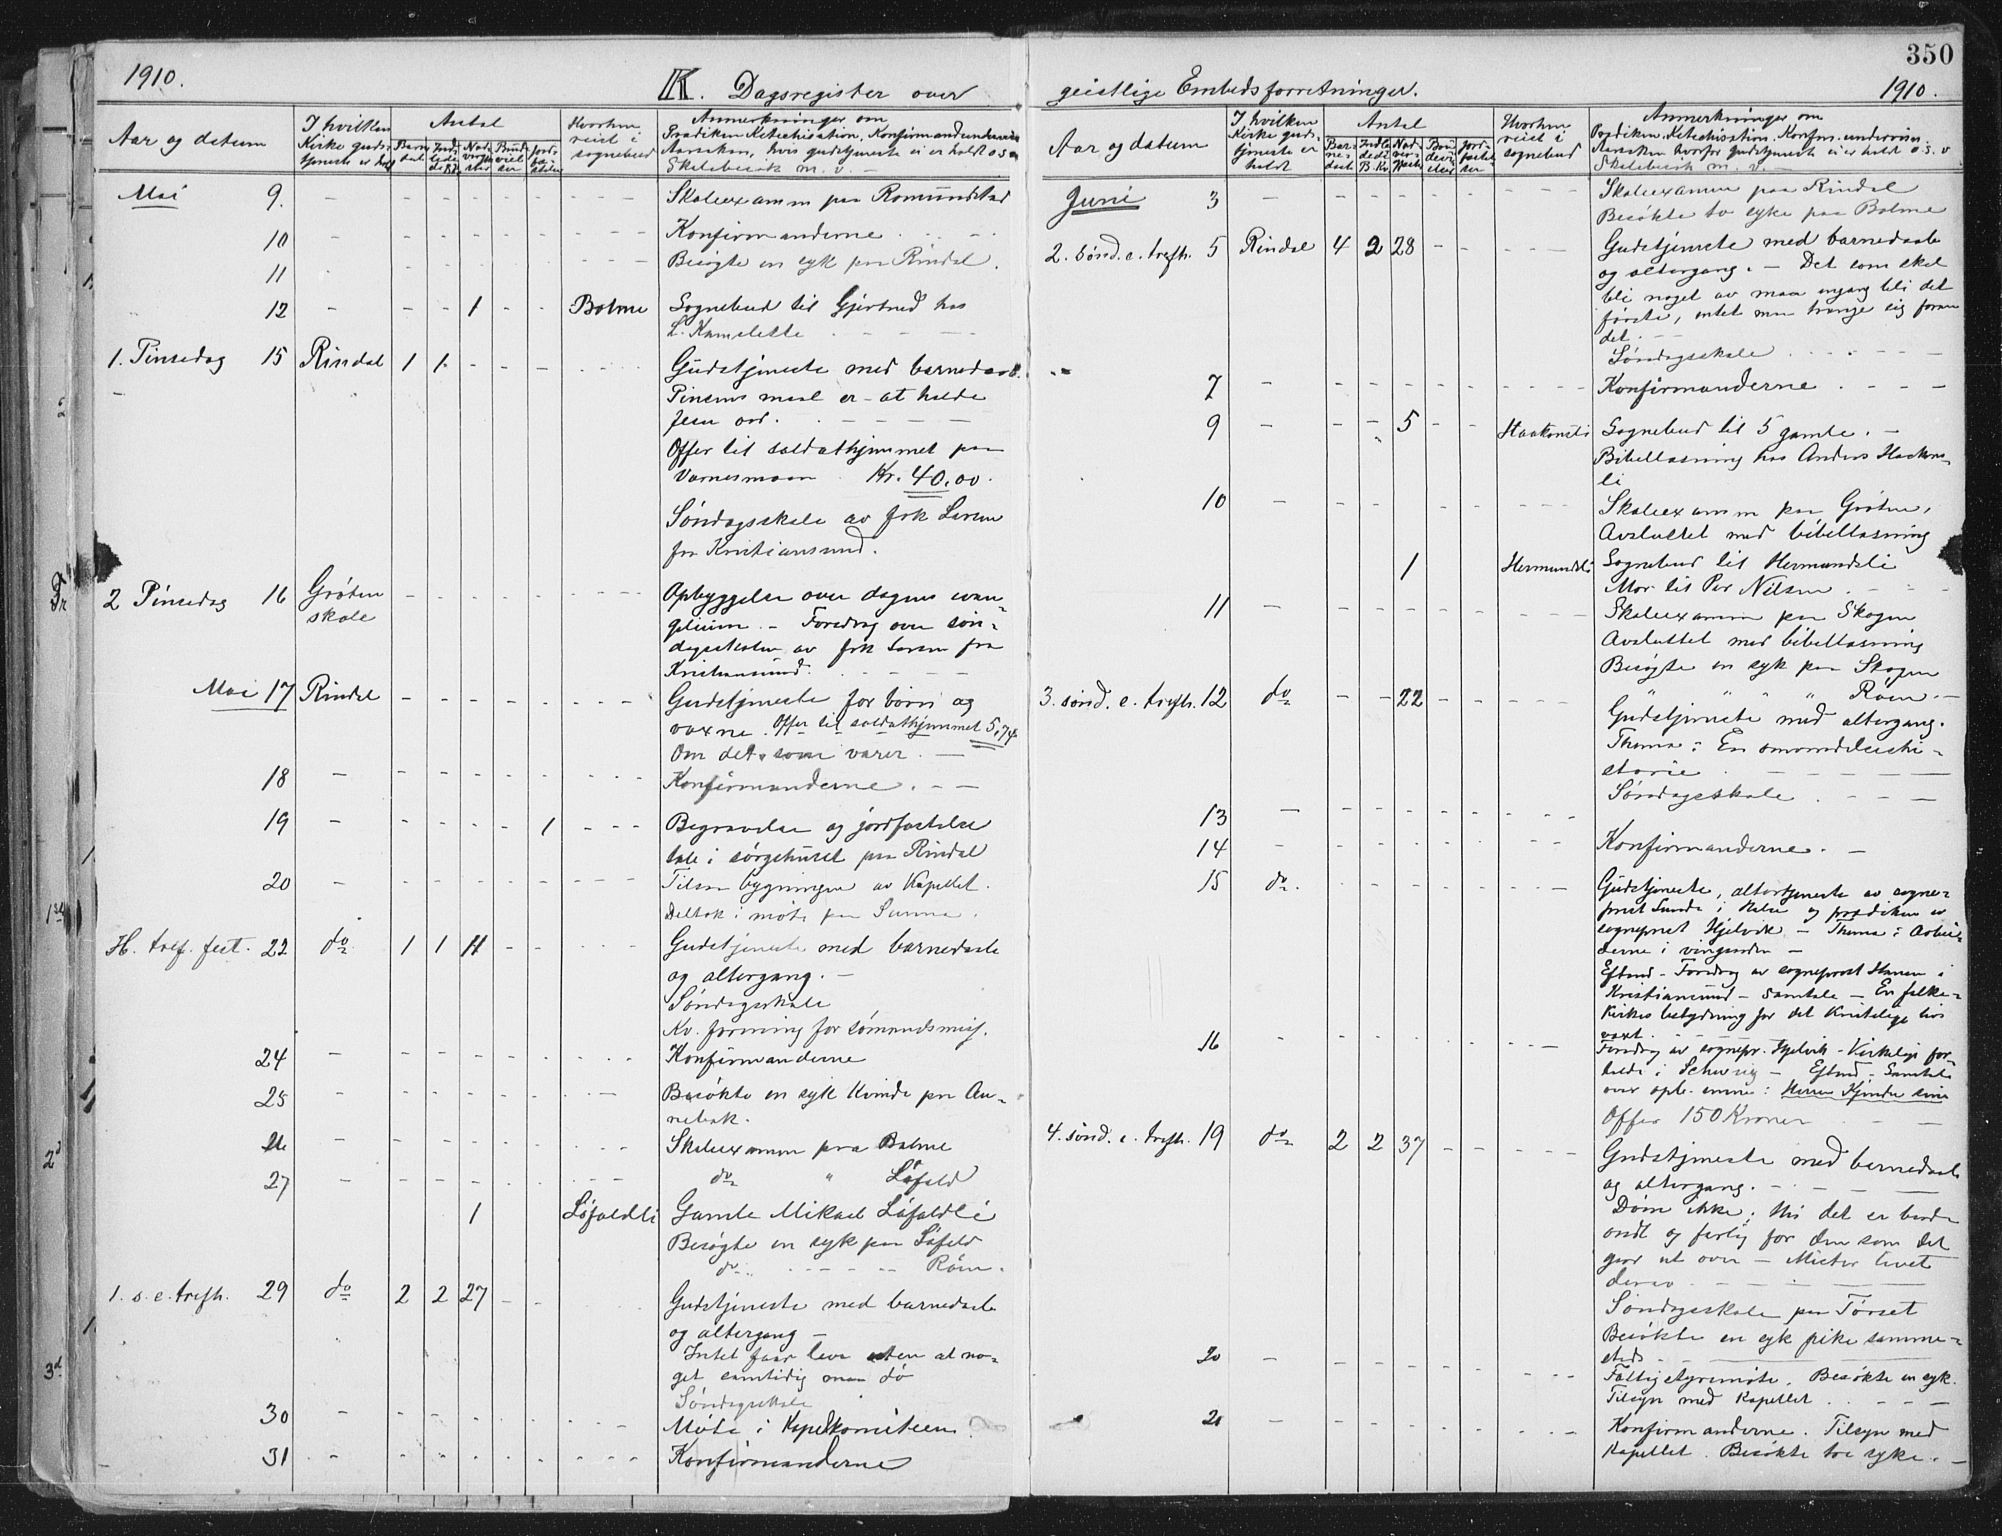 1910.
K. Dagsregister over
Aar og datum
I hvilken Kirke guds-tjeneste er holdt
Antal
Anmerkninger om
Mai 9. Skoleexamen paa Romundstad
10 Konfirmanderne
11 Besøgte en syk paa Rindal.
12 1 Bolme Sognebud til Gjertrud hos
1. Pinsedag 15 Rindal 1 1 Gudstjeneste med barnedaab.
Pinsens maal er at holde
Jesu ord.
Offer til soldathjemmet paa
Værnesmoen Kr. 40,00.
Søndagsskole av frk
fra Kristiansund.
2 Pinsedag 16 Grøten Opbyggelse over dagens evan-
skole gelium. - Foredrag over søn-
dagsskolen av frk fra
Kristiansund.
Mai 17 Rindal Gudstjeneste for børn og
voxne. Offer til soldathjemmet 5,74
Om det som varer
18 Konfirmanderne.
19 1 Begravelse og jordfæstelse
tale i sørgehuset paa Rindal
20 Tilsaa bygningen av Kapellet.
Deltok i møte paa
H. tref. fest. 22 do 1 1 11 Gudstjeneste med barnedaab
og altergang.
Søndagsskole
Kv. forening for sømandsmisj.
24 Konfirmanderne
25 Besøkte en syk kvinde paa An-
nebak.
26 Skoleexamen paa Bolme
27 do " Løfald
1 Løfaldli Gamle Mikael Løfaldli
Besøgte en syk paa Løfald
do Røen.
1. s. e. trefh. 29 do 2 2 27 Gudstjeneste med barnedaab
og altergang
Intet faar leve uten at no-
get samtidig maa dø
Søndagsskole
30 Møte i Kapelkomiteen
31 Konfirmanderne
350
geistlige Embedsforretninger.
1910.
Aar og datum
I hvilken Kirke guds-tjeneste er holdt
Antal
Anmerkninger om
Juni 3 Skoleexamen paa Rindal
Besøkte to syke paa Bolme
2. sønd. e. trefh. 5 Rindal 4 2 28 Gudstjeneste med barnedaab
og altergang. - Det som skal
bli noget av maa engang bli det
første, intet maa trænge sig foran
det.
Søndagsskole
7 Konfirmanderne
9 5 Haakonsli Sognebud til 5 gamle.
Bibellæsning hos Anders Haakons-
li
10 Skoleexamen paa Grøten,
Avsluttet med bibellæsning
1 Hermundsli Sognebud til Hermundsli
Mor til Per Nilsen
11 Skoleexamen paa Skogen
Avsluttet med bibellæsning
Besøgte en syk paa Skogen
" " " " Røen.
3. sønd. e. trefh. 12 do 22 Gudstjeneste med altergang.
Thema: En omvendelseshi-
storie
Søndagsskole
13
14 Konfirmanderne.
15 do. Gudstjeneste, altertjeneste av sogne-
prest Sunde i Halse og prædiken av
sogneprest Hjelvik - Thema: Arbei-
derne i vingaarden
Eftmd - Foredrag av sogneprest Hansen i
Kristiansund - samtale - En folke-
kirkes betydning for det kristelige livs
vext.
16 Foredrag av sognepr. Hjelvik - Kirkelige for-
holde i Schweiz - Eftmd - Samtale
over opb. emne: Herren kjender sine
Offer 150 Kroner
4. sønd. e. trefh. 19 do 2 2 37 Gudstjeneste med barnedaab
og altergang.
Døm ikke; thi det er baade
ondt og farlig for den som det
gaar ut over - Mister livet
derav
Søndagsskole paa Tørset
Besøkte en syk pike samme-
steds
20 Fattigstyremøte. Besøkte en syk.
Tilsyn med Kapellet
21 Konfirmanderne. Tilsyn med
Kapellet. Besøkte to syke.